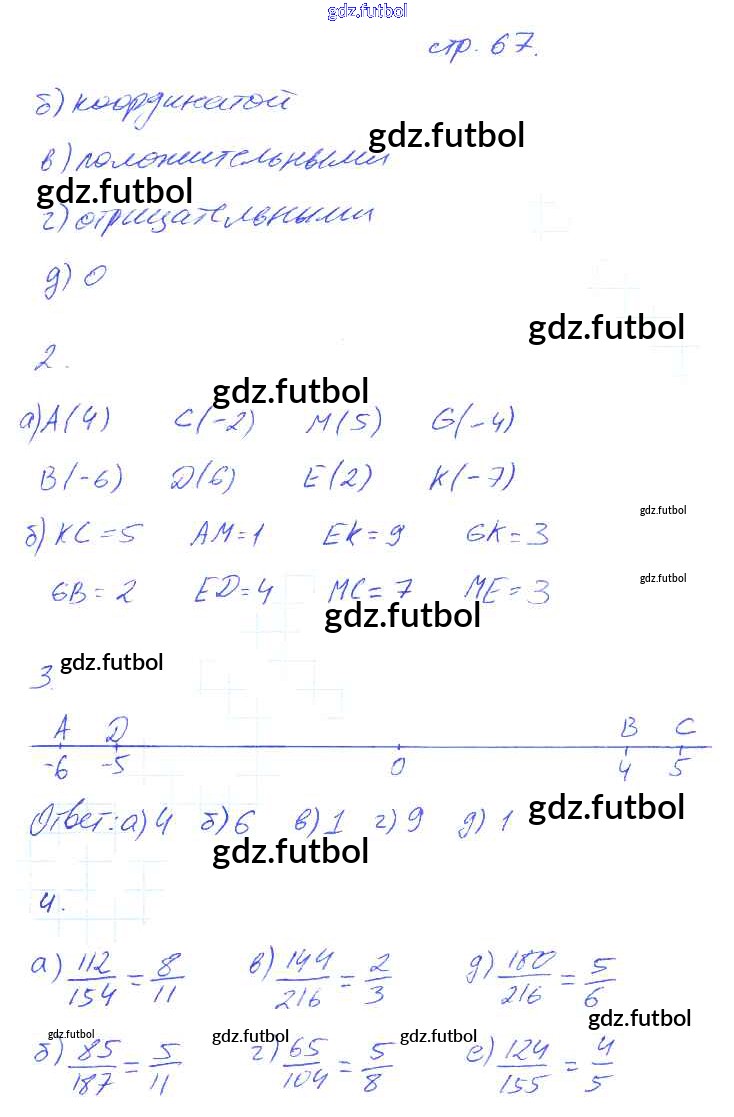 gdz.futbol
стр. 67.
б) координатой
gdz.futbol
в) положительными
gdz.futbol
г) отрицательными
д) 0
gdz.futbol
2.
gdz.futbol
а) A(4) C(-2) M(5) G(-4)
B(-6) D(6) E(2) K(-7)
gdz.futbol
б) KC=5 AM=1 EK=9 GK=3
gdz.futbol
GB=2 ED=4 MC=7 ME=3
gdz.futbol
gdz.futbol
3.
A D B C
-6 -5 0 4 5
gdz.futbol
Ответ: а) 4 б) 6 в) 1 г) 9 д) 1
gdz.futbol
4.
а) 112/154 = 8/11 в) 144/216 = 2/3 д) 180/216 = 5/6
gdz.futbol
gdz.futbol gdz.futbol gdz.futbol
б) 85/187 = 5/11 г) 65/104 = 5/8 е) 124/155 = 4/5